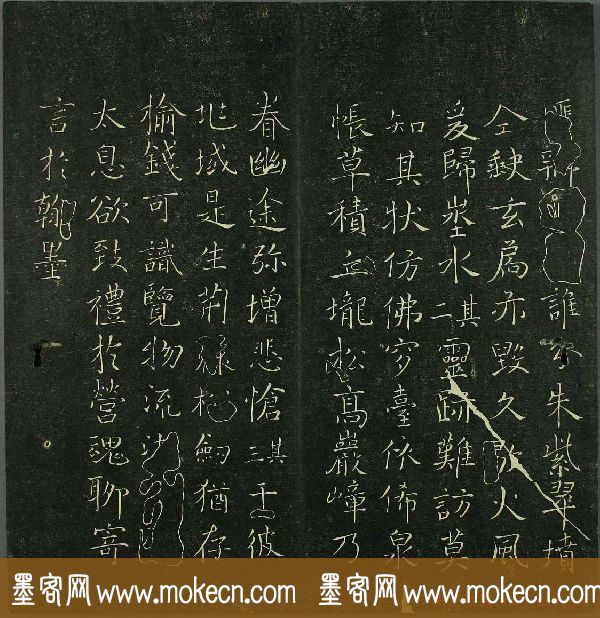 誰分朱紫翠墳
仝缺玄扃亦毀久歇火風
爰歸塋水其二靈跡難訪莫
知其狀仿佛穸臺依俙泉
帳草積丘壠松高巖嶂乃
眷幽途弥增悲愴其三于彼
垗域是生荊棘松劒猶存
榆錢可識覽物流
太息欲致禮於營魂聊寄
言於翰墨
墨客网 www.mokecn.com 墨客网 www.mokecn.com